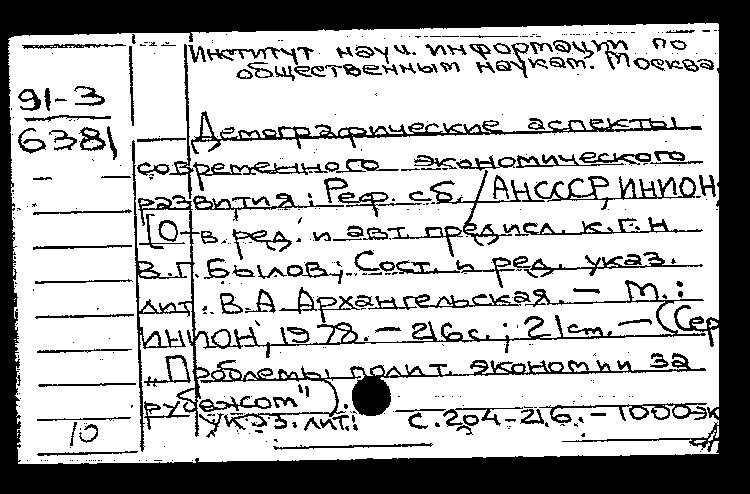 Институт науч. информации по
общественным наукам. Москва.
91-3
6381
Демографические аспекты
современного экономического
развития: Реф. сб. / АН СССР, ИНИОН;
[О-в. ред. и авт. предисл. к.г.н.
В.Г. Былов; Сост. и ред. указ.
лит. В.А. Архангельская. — М.:
ИНИОН, 1978. — 216 с.; 21 см. — (Сер
„Проблемы полит. экономии за
рубежом").
Указ. лит: с. 204-216. — 1000 эк
10